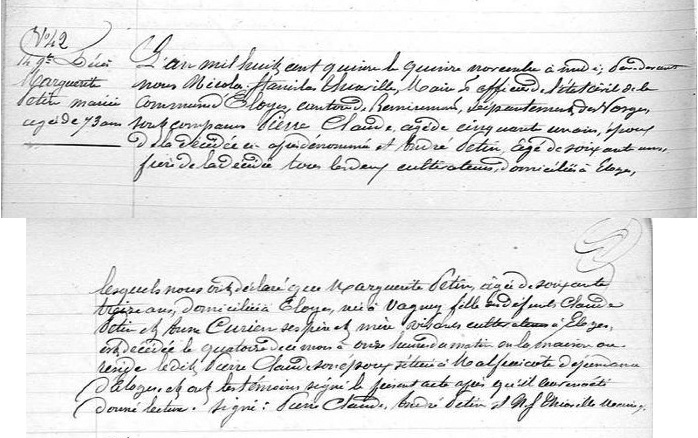 No 42
14 9bre Décès
Marguerite
Petin mariée
agée de 73 ans
L'an mil huit cent quinze le quinze novembre à midi, Par devant
nous Nicolas Stanislas Thiaville, Maire & officier de l'état civil de la
Commune d'Eloyes, canton de Remiremont, département des Vosges,
sont comparus Pierre Claude, agé de cinquante un ans, époux
de la décédée ci après dénommé et André Petin, agé de soixante ans,
frère de la décédée tous les deux cultivateurs, domiciliés à Eloyes,
lesquels nous ont déclaré que Marguerite Petin, agée de soixante
treize ans, domiciliée à Eloyes, née à Vagney fille des défunts Claude
Petin et Anne Curien ses père et mère vivants cultivateurs à Eloyes,
est décédée le quatorze de ce mois à onze heures du matin en la maison où
réside ledit Pierre Claude son époux située à
d'Eloyes. et ont les témoins signé le présent acte après qu'il leur en a été
donné lecture. Signé: Pierre Claude, André Petin et N S Thiaville Maire.